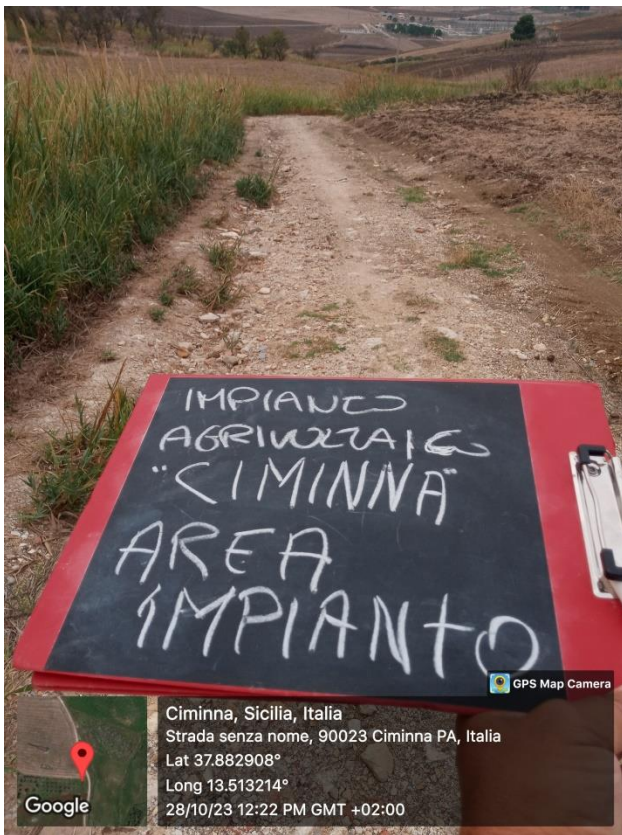 IMPIANTO
AGRIVOLTAICO
"CIMINNA"
AREA
IMPIANTO
GPS Map Camera
Ciminna, Sicilia, Italia
Strada senza nome, 90023 Ciminna PA, Italia
Lat 37.882908°
Long 13.513214°
28/10/23 12:22 PM GMT +02:00
Google